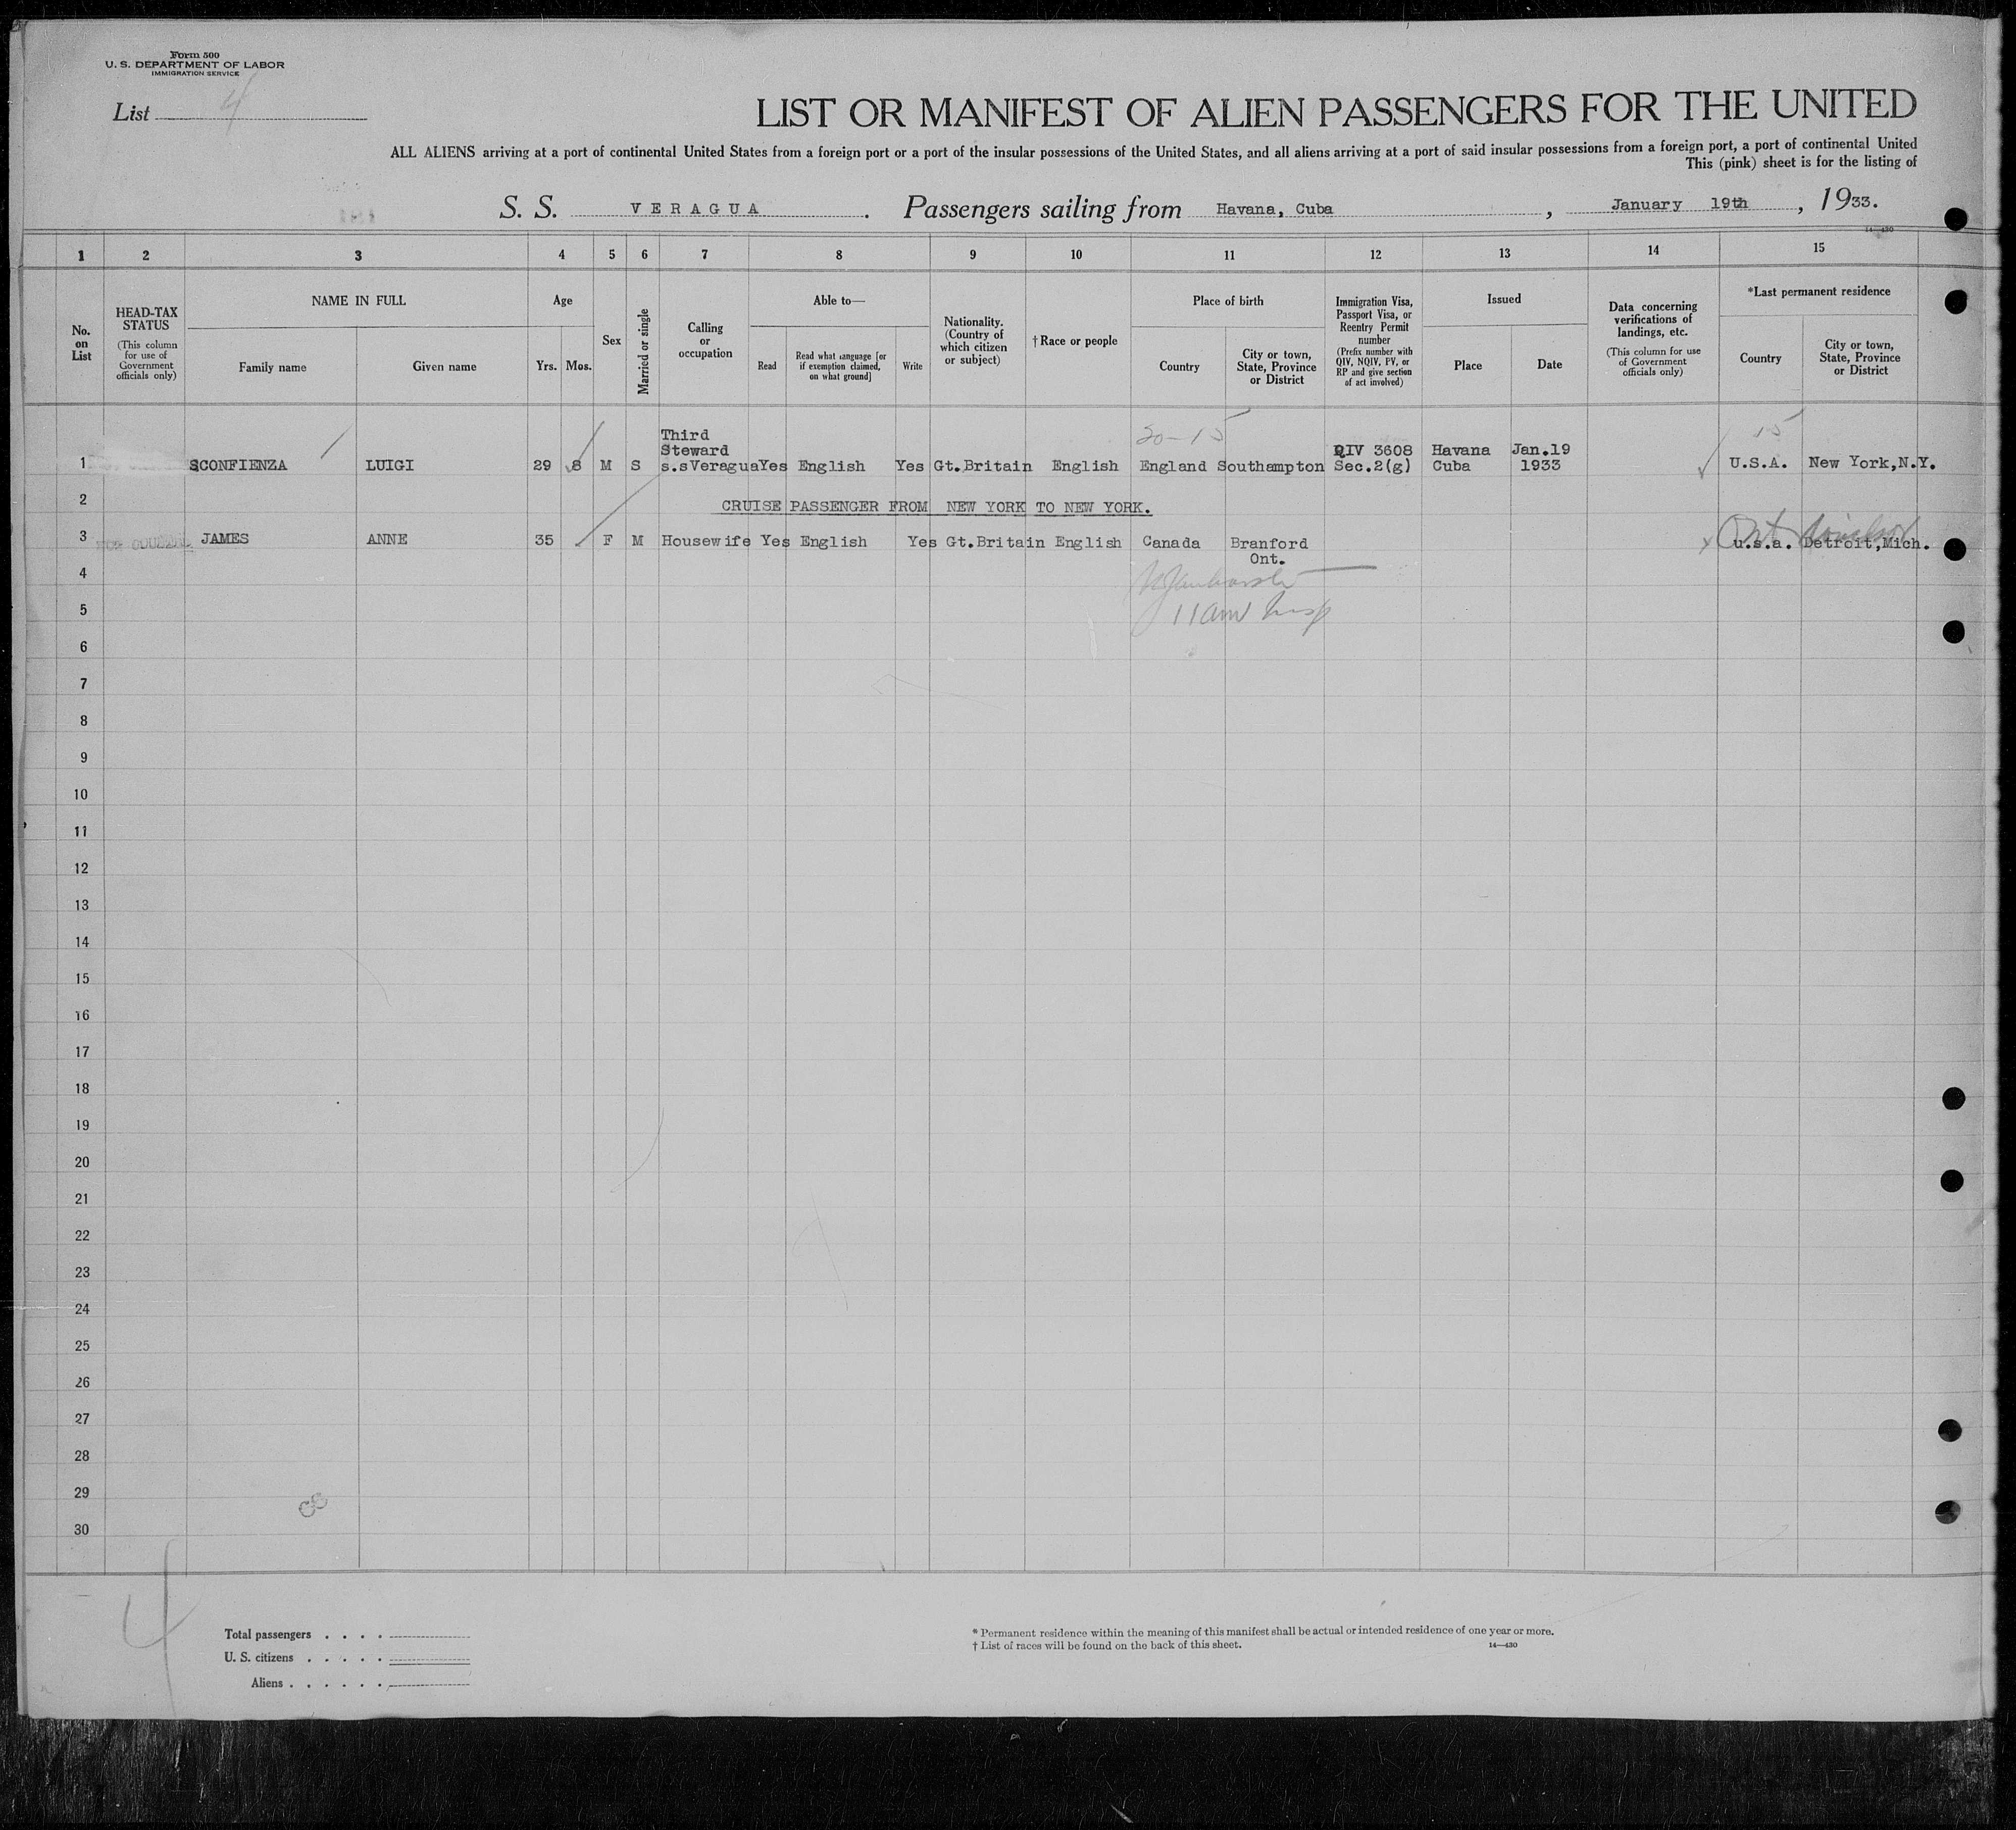 Form 500
U. S. DEPARTMENT OF LABOR
IMMIGRATION SERVICE
List 4
LIST OR MANIFEST OF ALIEN PASSENGERS FOR THE UNITED
ALL ALIENS arriving at a port of continental United States from a foreign port or a port of the insular possessions of the United States, and all aliens arriving at a port of said insular possessions from a foreign port, a port of continental United
This (pink) sheet is for the listing of
S. S. VERAGUA. Passengers sailing from Havana, Cuba, January 19th, 1933.
14—430
1 2 3 4 5 6 7 8 9 10 11 12 13 14 15
No. on List
HEAD-TAX STATUS
(This column for use of Government officials only)
NAME IN FULL
Family name Given name
Age
Yrs. Mos.
Sex
Married or single
Calling or occupation
Able to—
Read
Read what language [or if exemption claimed, on what ground]
Write
Nationality. (Country of which citizen or subject)
† Race or people
Place of birth
Country
City or town, State, Province or District
Immigration Visa, Passport Visa, or Reentry Permit number
(Prefix number with QIV, NQIV, PV, or RP and give section of act involved)
Issued
Place Date
Data concerning verifications of landings, etc.
(This column for use of Government officials only)
*Last permanent residence
Country
City or town, State, Province or District
20-15
15
1 SCONFIENZA LUIGI 29 8 M S Third Steward s.sVeragua Yes English Yes Gt.Britain English England Southampton QIV 3608 Sec.2(g) Havana Cuba Jan.19 1933 U.S.A. New York,N.Y.
2 CRUISE PASSENGER FROM NEW YORK TO NEW YORK.
3 JAMES ANNE 35 F M Housewife Yes English Yes Gt.Britain English Canada Branford Ont. u.s.a. Detroit,Mich.
Ont Windsor
4
11am Insp
5
6
7
8
9
10
11
12
13
14
15
16
17
18
19
20
21
22
23
24
25
26
27
28
29
30
4
Total passengers . . . .
U. S. citizens . . . . .
Aliens . . . . . .
* Permanent residence within the meaning of this manifest shall be actual or intended residence of one year or more.
† List of races will be found on the back of this sheet.
14—430